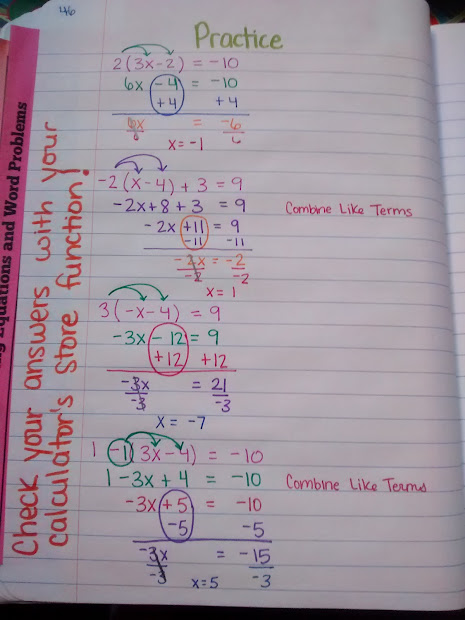 46
Practice
2(3x-2) = -10
6x -4 = -10
+4 +4
6x = -6
6 6
x = -1
-2(x-4) + 3 = 9
-2x+8+3 = 9 Combine Like Terms
-2x +11 = 9
-11 -11
-2x = -2
-2 -2
x = 1
3(-x-4) = 9
-3x - 12 = 9
+12 +12
-3x = 21
-3 -3
x = -7
1 -1(3x-4) = -10
1-3x + 4 = -10 Combine Like Terms
-3x +5 = -10
-5 -5
-3x = -15
-3 -3
x=5
Check your answers with your
calculator's store function!
Equations and Word Problems